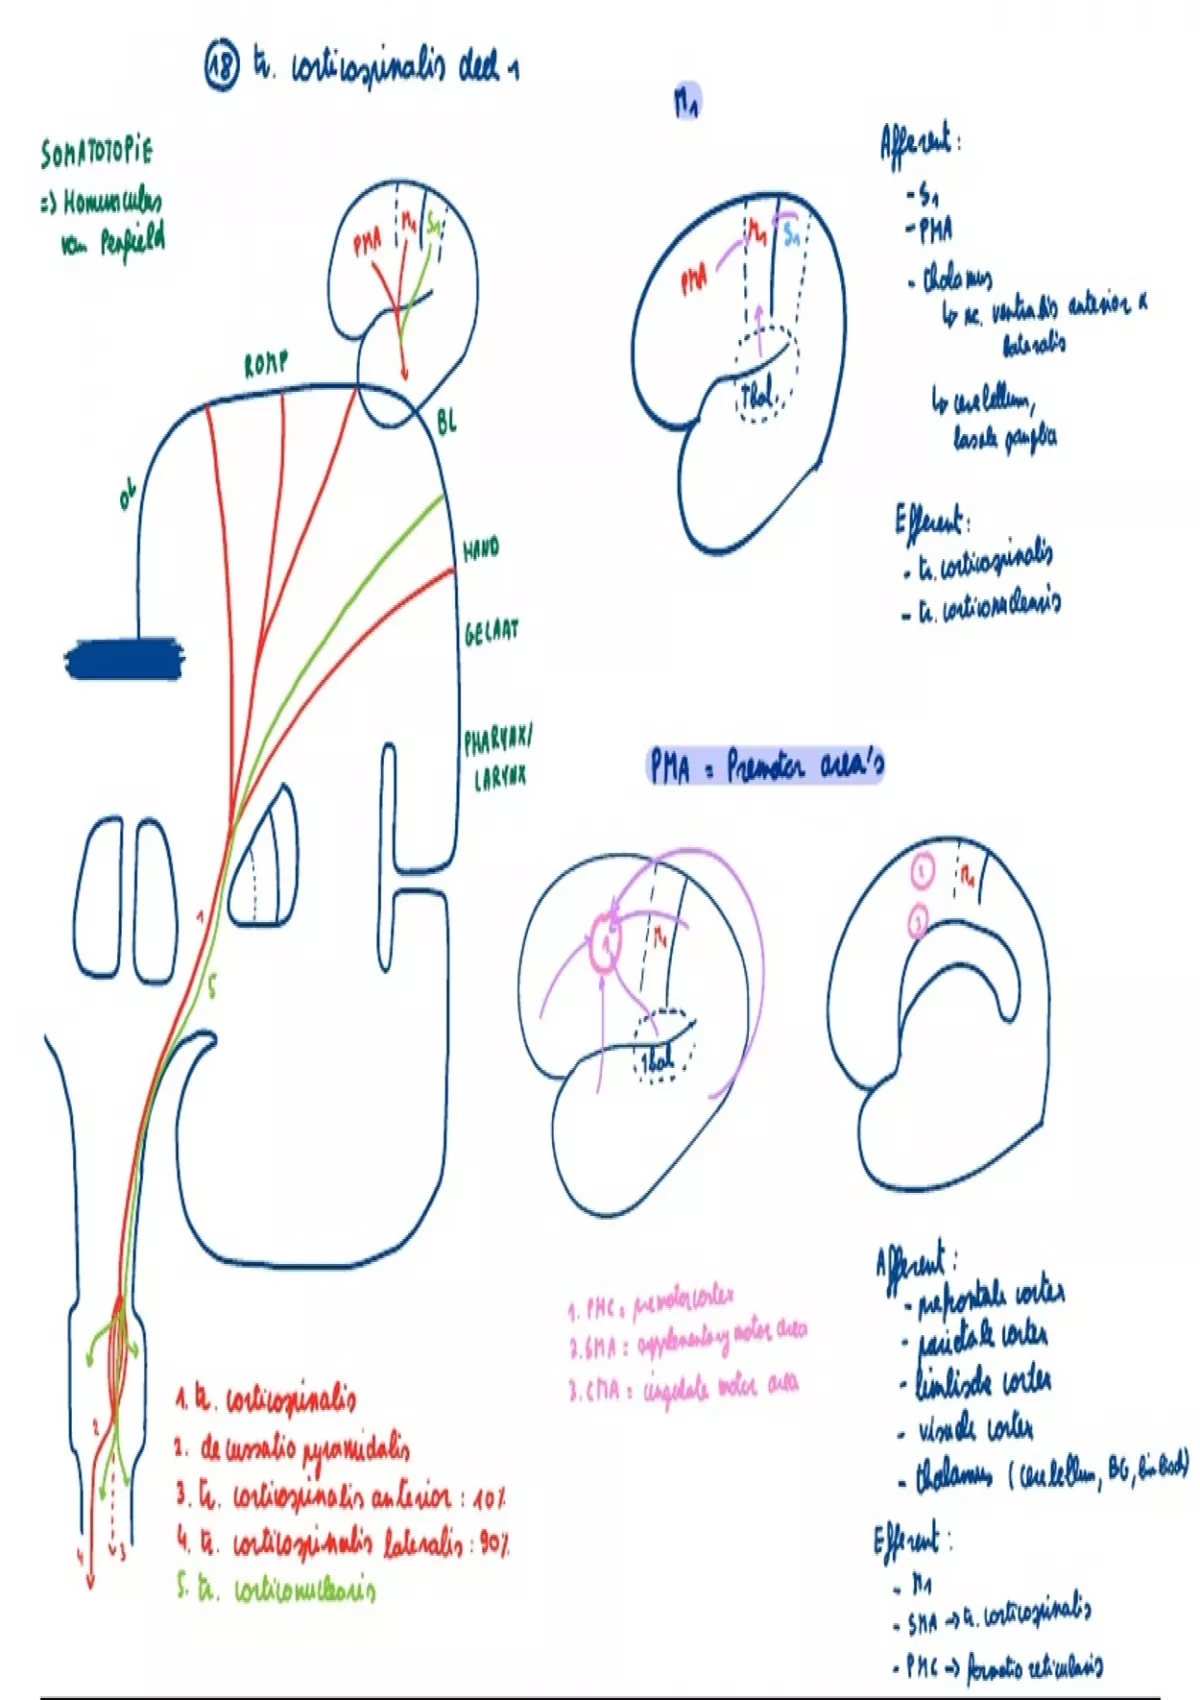 18 tr. corticospinalis deel 1
SOMATOTOPIE
=> Homunculus
van Penfield
PMA
M1
S1
ROMP
BL
OL
HAND
GELAAT
PHARYNX/
LARYNX
1
5
2
4
3
1. tr. corticospinalis
2. decussatio pyramidalis
3. tr. corticospinalis anterior : 10%
4. tr. corticospinalis lateralis : 90%
5. tr. corticonuclearis
M1
PMA
M1
S1
Thal.
Afferent :
- S1
- PMA
- thalamus
↳ nc. ventralis anterior &
lateralis
↳ cerebellum,
basale ganglia
Efferent :
- tr. corticospinalis
- tr. corticonuclearis
PMA = Premotor area's
1
M1
Thal.
2
M1
3
1. PMC = premotorcortex
2. SMA = supplementary motor area
3. CMA = cingulate motor area
Afferent :
- prefrontale cortex
- parietale cortex
- limbische cortex
- visuele cortex
- thalamus (cerebellum, BG, limbisch)
Efferent :
- M1
- SMA → tr. corticospinalis
- PMC → formatio reticularis